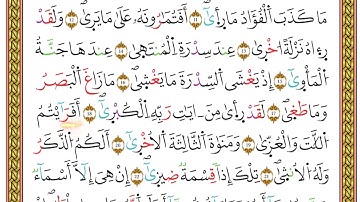 مَا كَذَبَ ٱلْفُؤَادُ مَا رَأَىٰٓ ١١ أَفَتُمَٰرُونَهُۥ عَلَىٰ مَا يَرَىٰ ١٢ وَلَقَدْ
رَءَاهُ نَزْلَةً أُخْرَىٰ ١٣ عِندَ سِدْرَةِ ٱلْمُنتَهَىٰ ١٤ عِندَهَا جَنَّةُ
ٱلْمَأْوَىٰٓ ١٥ إِذْ يَغْشَى ٱلسِّدْرَةَ مَا يَغْشَىٰ ١٦ مَا زَاغَ ٱلْبَصَرُ
وَمَا طَغَىٰ ١٧ لَقَدْ رَأَىٰ مِنْ ءَايَٰتِ رَبِّهِ ٱلْكُبْرَىٰٓ ١٨ أَفَرَءَيْتُمُ
ٱللَّٰتَ وَٱلْعُزَّىٰ ١٩ وَمَنَوٰةَ ٱلثَّالِثَةَ ٱلْأُخْرَىٰٓ ٢٠ أَلَكُمُ ٱلذَّكَرُ
وَلَهُ ٱلْأُنثَىٰ ٢١ تِلْكَ إِذًا قِسْمَةٌ ضِيزَىٰٓ ٢٢ إِنْ هِىَ إِلَّآ أَسْمَآءٌ